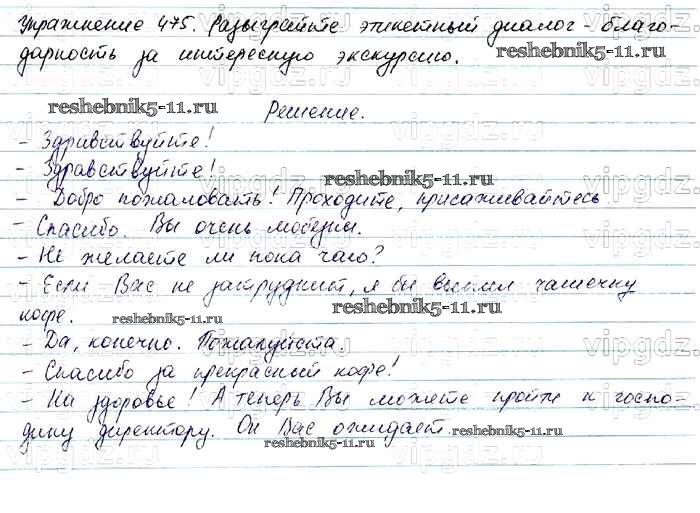 Упражнение 475. Разыграйте этикетный диалог - благо-
дарность за интересную экскурсию.
reshebnik5-11.ru
reshebnik5-11.ru
Решение.
- Здравствуйте!
- Здравствуйте!
reshebnik5-11.ru
- Добро пожаловать! Проходите, присаживайтесь
- Спасибо. Вы очень любезны.
- Не желаете ли пока чаю?
- Если Вас не затруднит, я бы выпил чашечку
кофе.
reshebnik5-11.ru
reshebnik5-11.ru
- Да, конечно. Пожалуйста.
- Спасибо за прекрасный кофе!
- На здоровье! А теперь Вы можете пройти к госпо-
дину директору. Он Вас ожидает.
reshebnik5-11.ru
reshebnik5-11.ru
vipgdz.ru